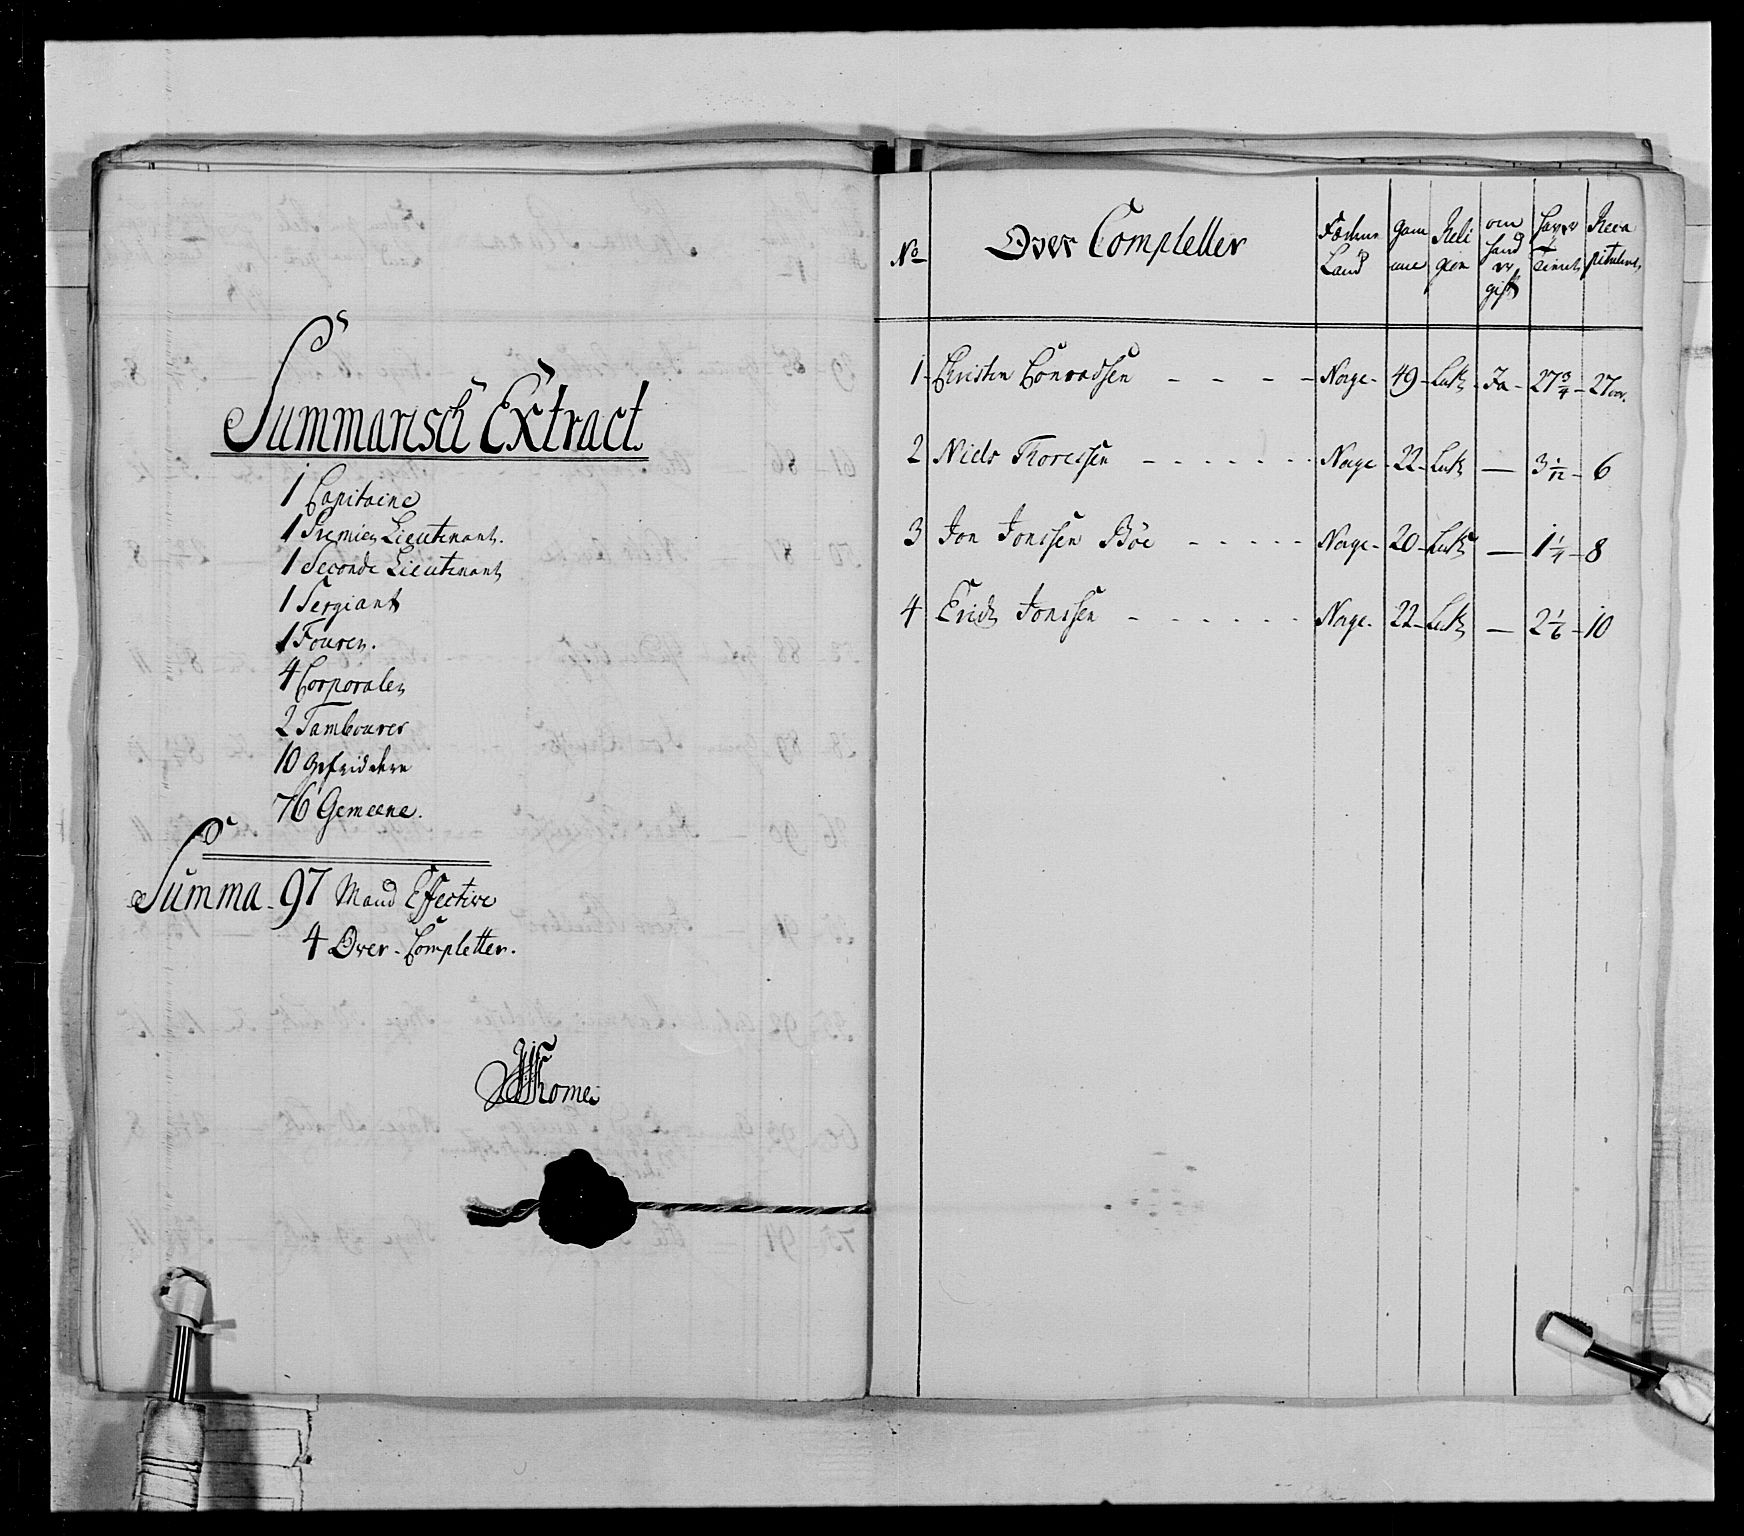 Summarisch Extract.
1 Capitaine
1 Premier Lieutenant.
1 Seconde Lieutenant
1 Sergiant
1 Fourer.
4 Corporaler
2 Tambourer
10 Gefridere
76 Gemeene.
Summa - 97 Mand Effective
4 Over-Completter.
No Over Completter Fødene Land gam mel Reli gion om hand er gift hav er tient
1 - Christen Conradsen - - - - Norge - 49 - Luth - Ja - 27 3/4 - 27
2 Niels Thoresen - - - - - - Norge - 22 - Luth - 3 1/12 - 6
3 Jon Jonssen Böe - - - - - Norge - 20 - Luth - 1 1/4 - 8
4 Erich Jonssen - - - - - - Norge - 22 - Luth - 2 1/6 - 10